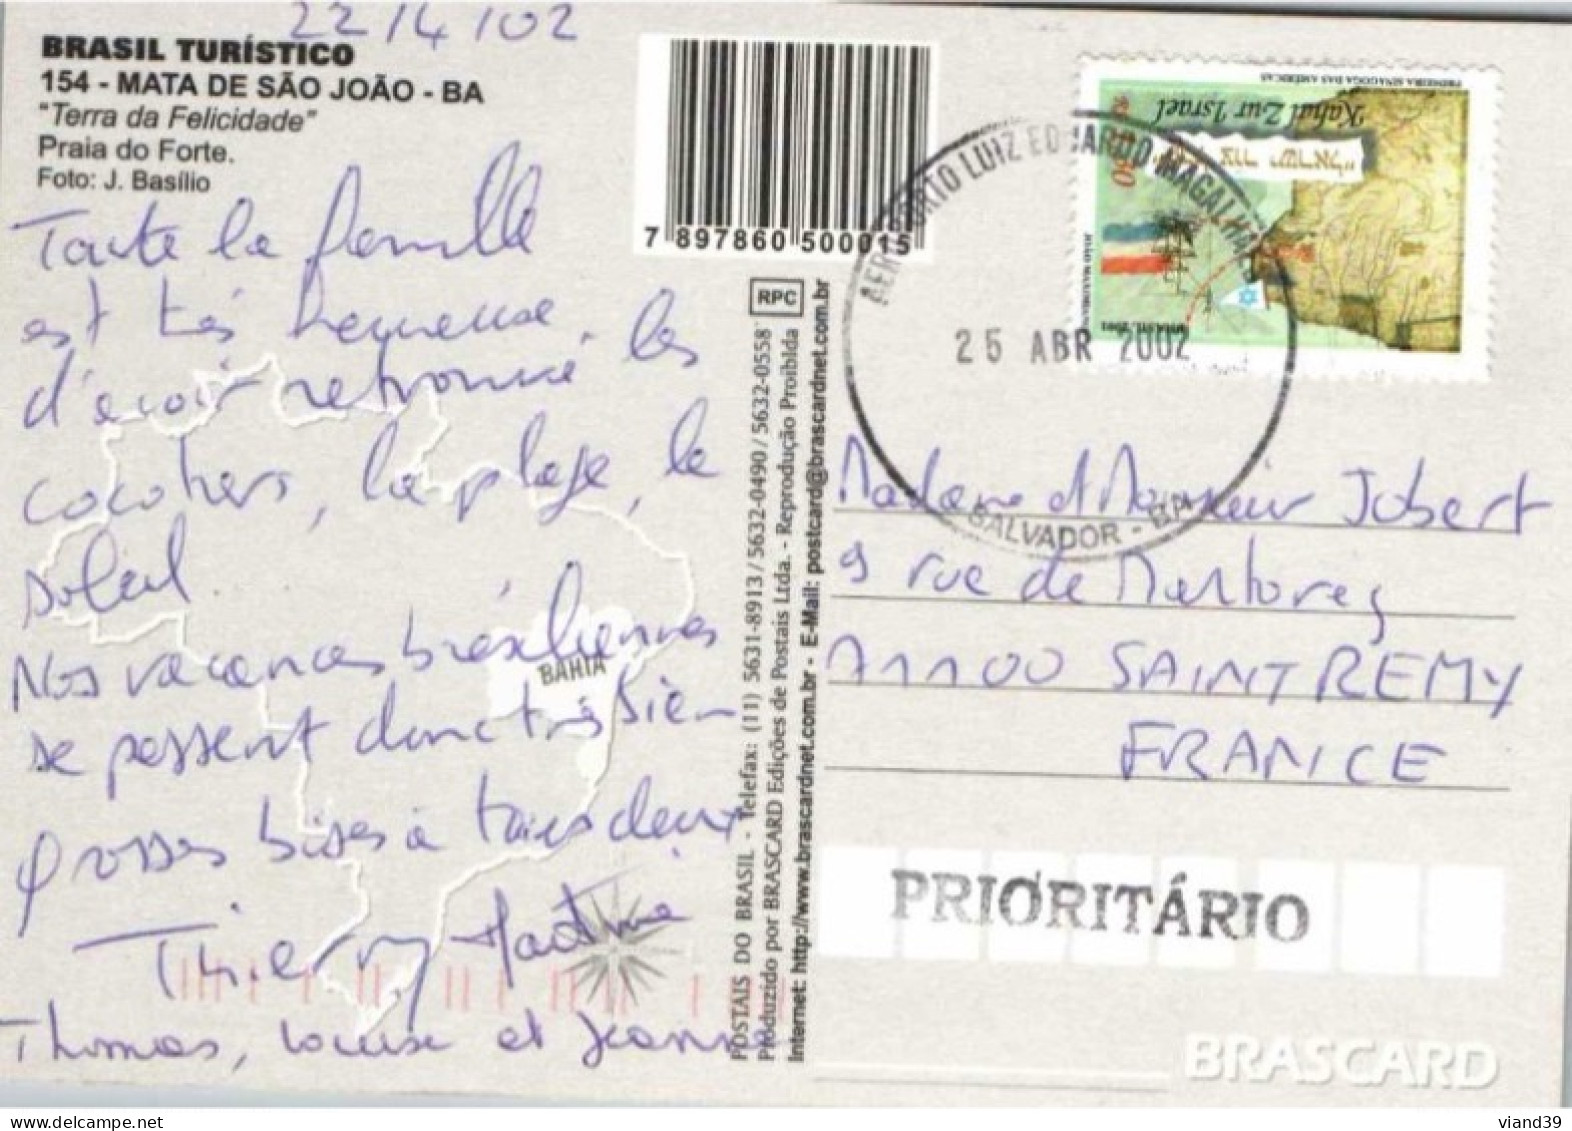 22/4/02
BRASIL TURÍSTICO
154 - MATA DE SÃO JOÃO - BA
"Terra da Felicidade"
Praia do Forte.
Foto: J. Basílio
Toute la famille
est très heureuse
d'avoir retrouvé les
cocotiers, la plage, le
soleil.
Nos vacances brésiliennes
se passent donc très bien
grosses bises à tous deux
Thierry Martine
Thomas, Louise et Jeanne
BAHIA
7 897860 500015
RPC
POSTAIS DO BRASIL - Telefax: (11) 5631-8913/5632-0490/5632-0558
Produzido por BRASCARD Edições de Postais Ltda. - Reprodução Proibida
Internet: http://www.brascardnet.com.br - E-Mail: postcard@brascardnet.com.br
PRIMEIRA SINAGOGA DAS AMÉRICAS
Kahal Zur Israel
צור ישראל"
BRASIL 2001
AEROPORTO LUIZ EDUARDO MAGALHÃES
25 ABR 2002
SALVADOR - BA
Madame et Monsieur Jobert
9 rue de Martorez
71100 SAINT REMY
FRANCE
PRIORITÁRIO
BRASCARD
viand39